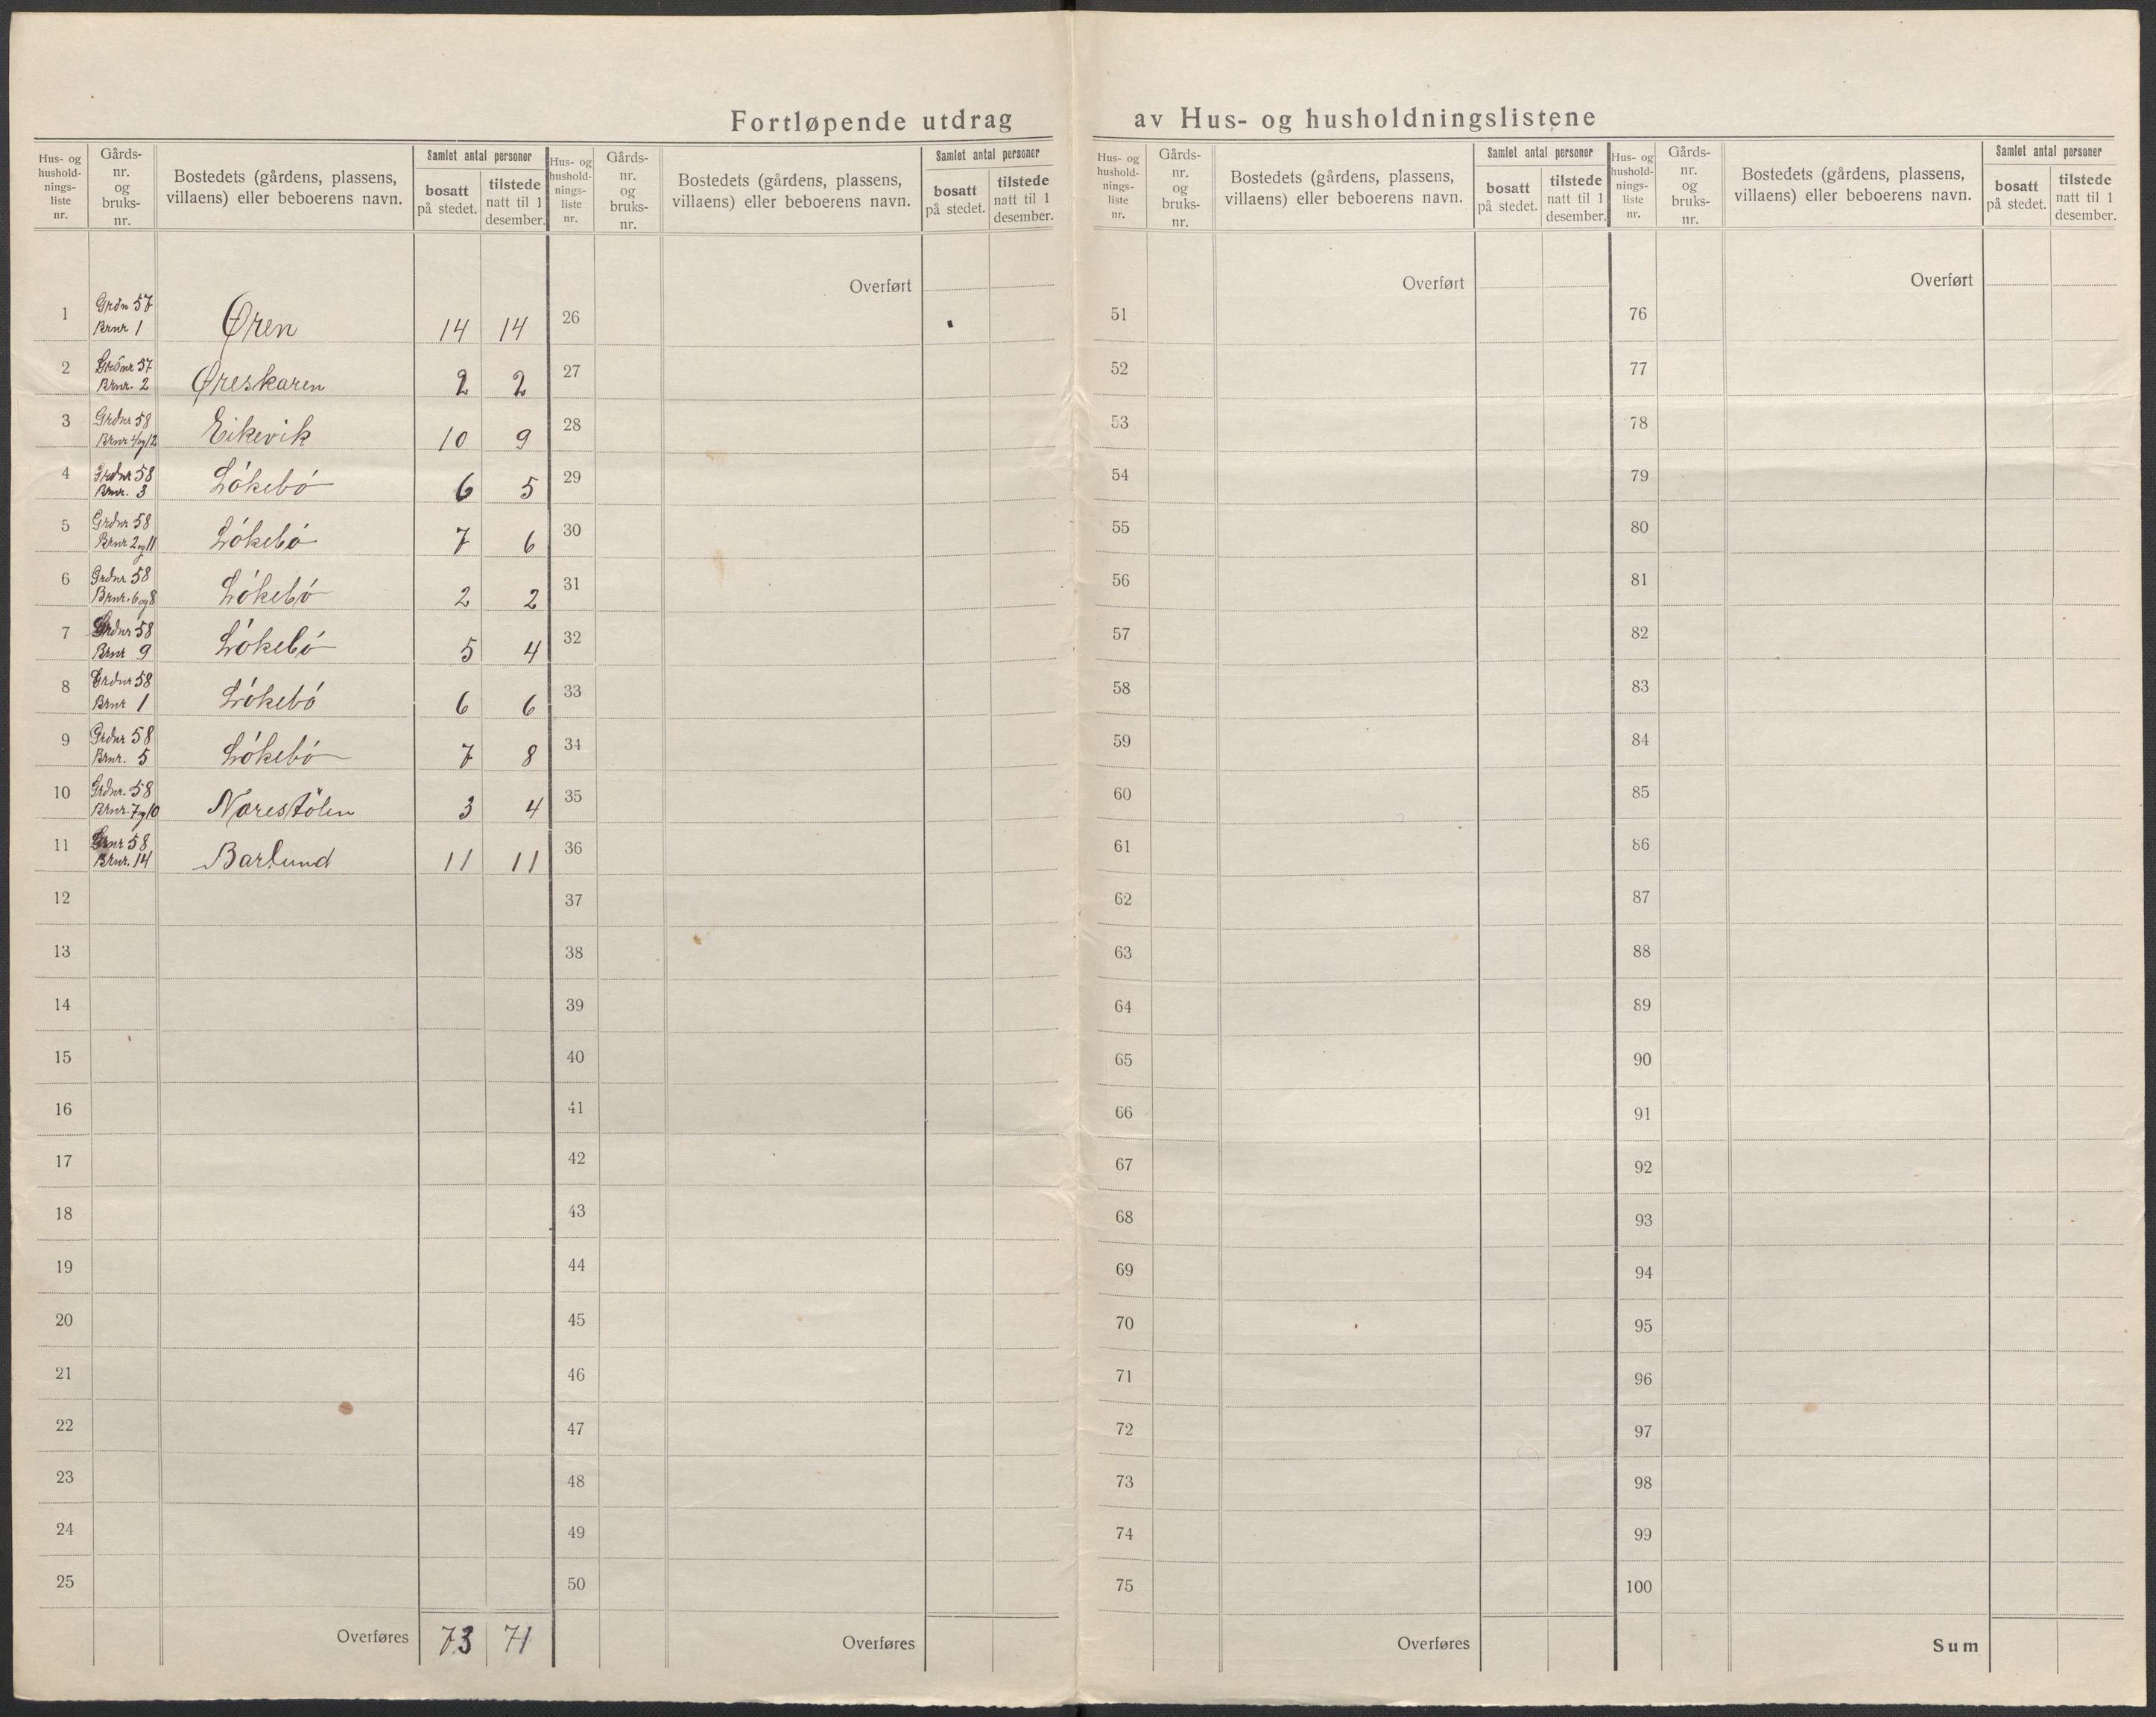 Fortløpende utdrag av Hus- og husholdningslistene
Hus- og hushold- nings- liste nr.
Gårds- nr. og bruks- nr.
Bostedets (gårdens, plassens, villaens) eller beboerens navn.
Samlet antal personer
bosatt på stedet.
tilstede natt til 1 desember.
Hus- og hushold- nings- liste nr.
Gårds- nr. og bruks- nr.
Bostedets (gårdens, plassens, villaens) eller beboerens navn.
Samlet antal personer
bosatt på stedet.
tilstede natt til 1 desember.
Hus- og hushold- nings- liste nr.
Gårds- nr. og bruks- nr.
Bostedets (gårdens, plassens, villaens) eller beboerens navn.
Samlet antal personer
bosatt på stedet.
tilstede natt til 1 desember.
Hus- og hushold- nings- liste nr.
Gårds- nr. og bruks- nr.
Bostedets (gårdens, plassens, villaens) eller beboerens navn.
Samlet antal personer
bosatt på stedet.
tilstede natt til 1 desember.
1 Grdn 57 Brnr 1 Øren 14 14
2 Grdnr 57 Brnr. 2 Øreskaren 2 2
3 Grdnr 58 Brnr 4 og 12 Eikevik 10 9
4 Grdnr 58 Brnr. 3 Lókebó 6 5
5 Grdnr 58 Brnr 2 og 11 Lókebó 7 6
6 Grdnr 58 Brnr. 6 og 8 Lókebó 2 2
7 Grdnr 58 Brnr 9 Lókebó 5 4
8 Grdnr 58 Brnr 1 Lókebó 6 6
9 Grdnr 58 Brnr. 5 Lókebó 7 8
10 Grdnr. 58 Brnr. 7 og 10 Norestölen 3 4
11 Grnr 58 Brnr. 14 Barlund 11 11
12
13
14
15
16
17
18
19
20
21
22
23
24
25
Overføres 73 71
Overført
26
27
28
29
30
31
32
33
34
35
36
37
38
39
40
41
42
43
44
45
46
47
48
49
50
Overføres
Overført
51
52
53
54
55
56
57
58
59
60
61
62
63
64
65
66
67
68
69
70
71
72
73
74
75
Overføres
Overført
76
77
78
79
80
81
82
83
84
85
86
87
88
89
90
91
92
93
94
95
96
97
98
99
100
Sum